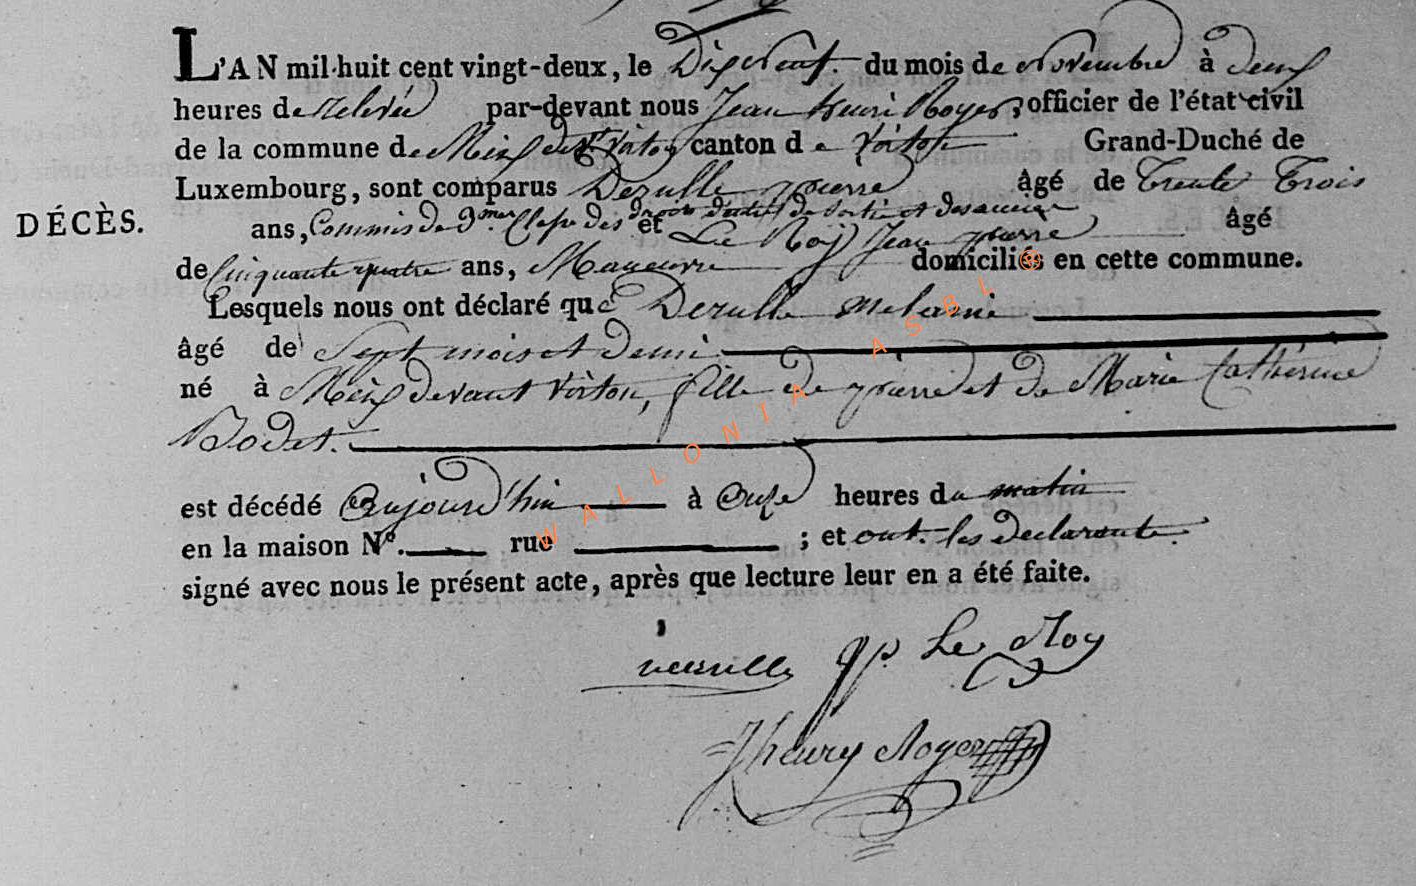 L'AN mil-huit cent vingt-deux, le Dixneuf. du mois de Novembre à deux
heures de Relevée par-devant nous Jean henri Royer, officier de l'état civil
de la commune de Meix devt Virton canton de Virton Grand-Duché de
Luxembourg, sont comparus Derulle pierre âgé de Trente Trois
DÉCÈS.
ans, Commis de des droits d'entrée de Sortie et des accises et Le Roy Jean pierre âgé
de Cinquante quatre ans, Maneuvre domiciliés en cette commune.
Lesquels nous ont déclaré que Derulle melanie
âgé de Sept mois et demi
né à Meix devant Virton, fille de pierre et de Marie Catherine
Bodet.
est décédé aujourd'hui à Onze heures du matin
en la maison Nº. rue ; et ont les declarants.
signé avec nous le présent acte, après que lecture leur en a été faite.
jp. Le Roy
Jhenry Royer
WALLONIA ASBL